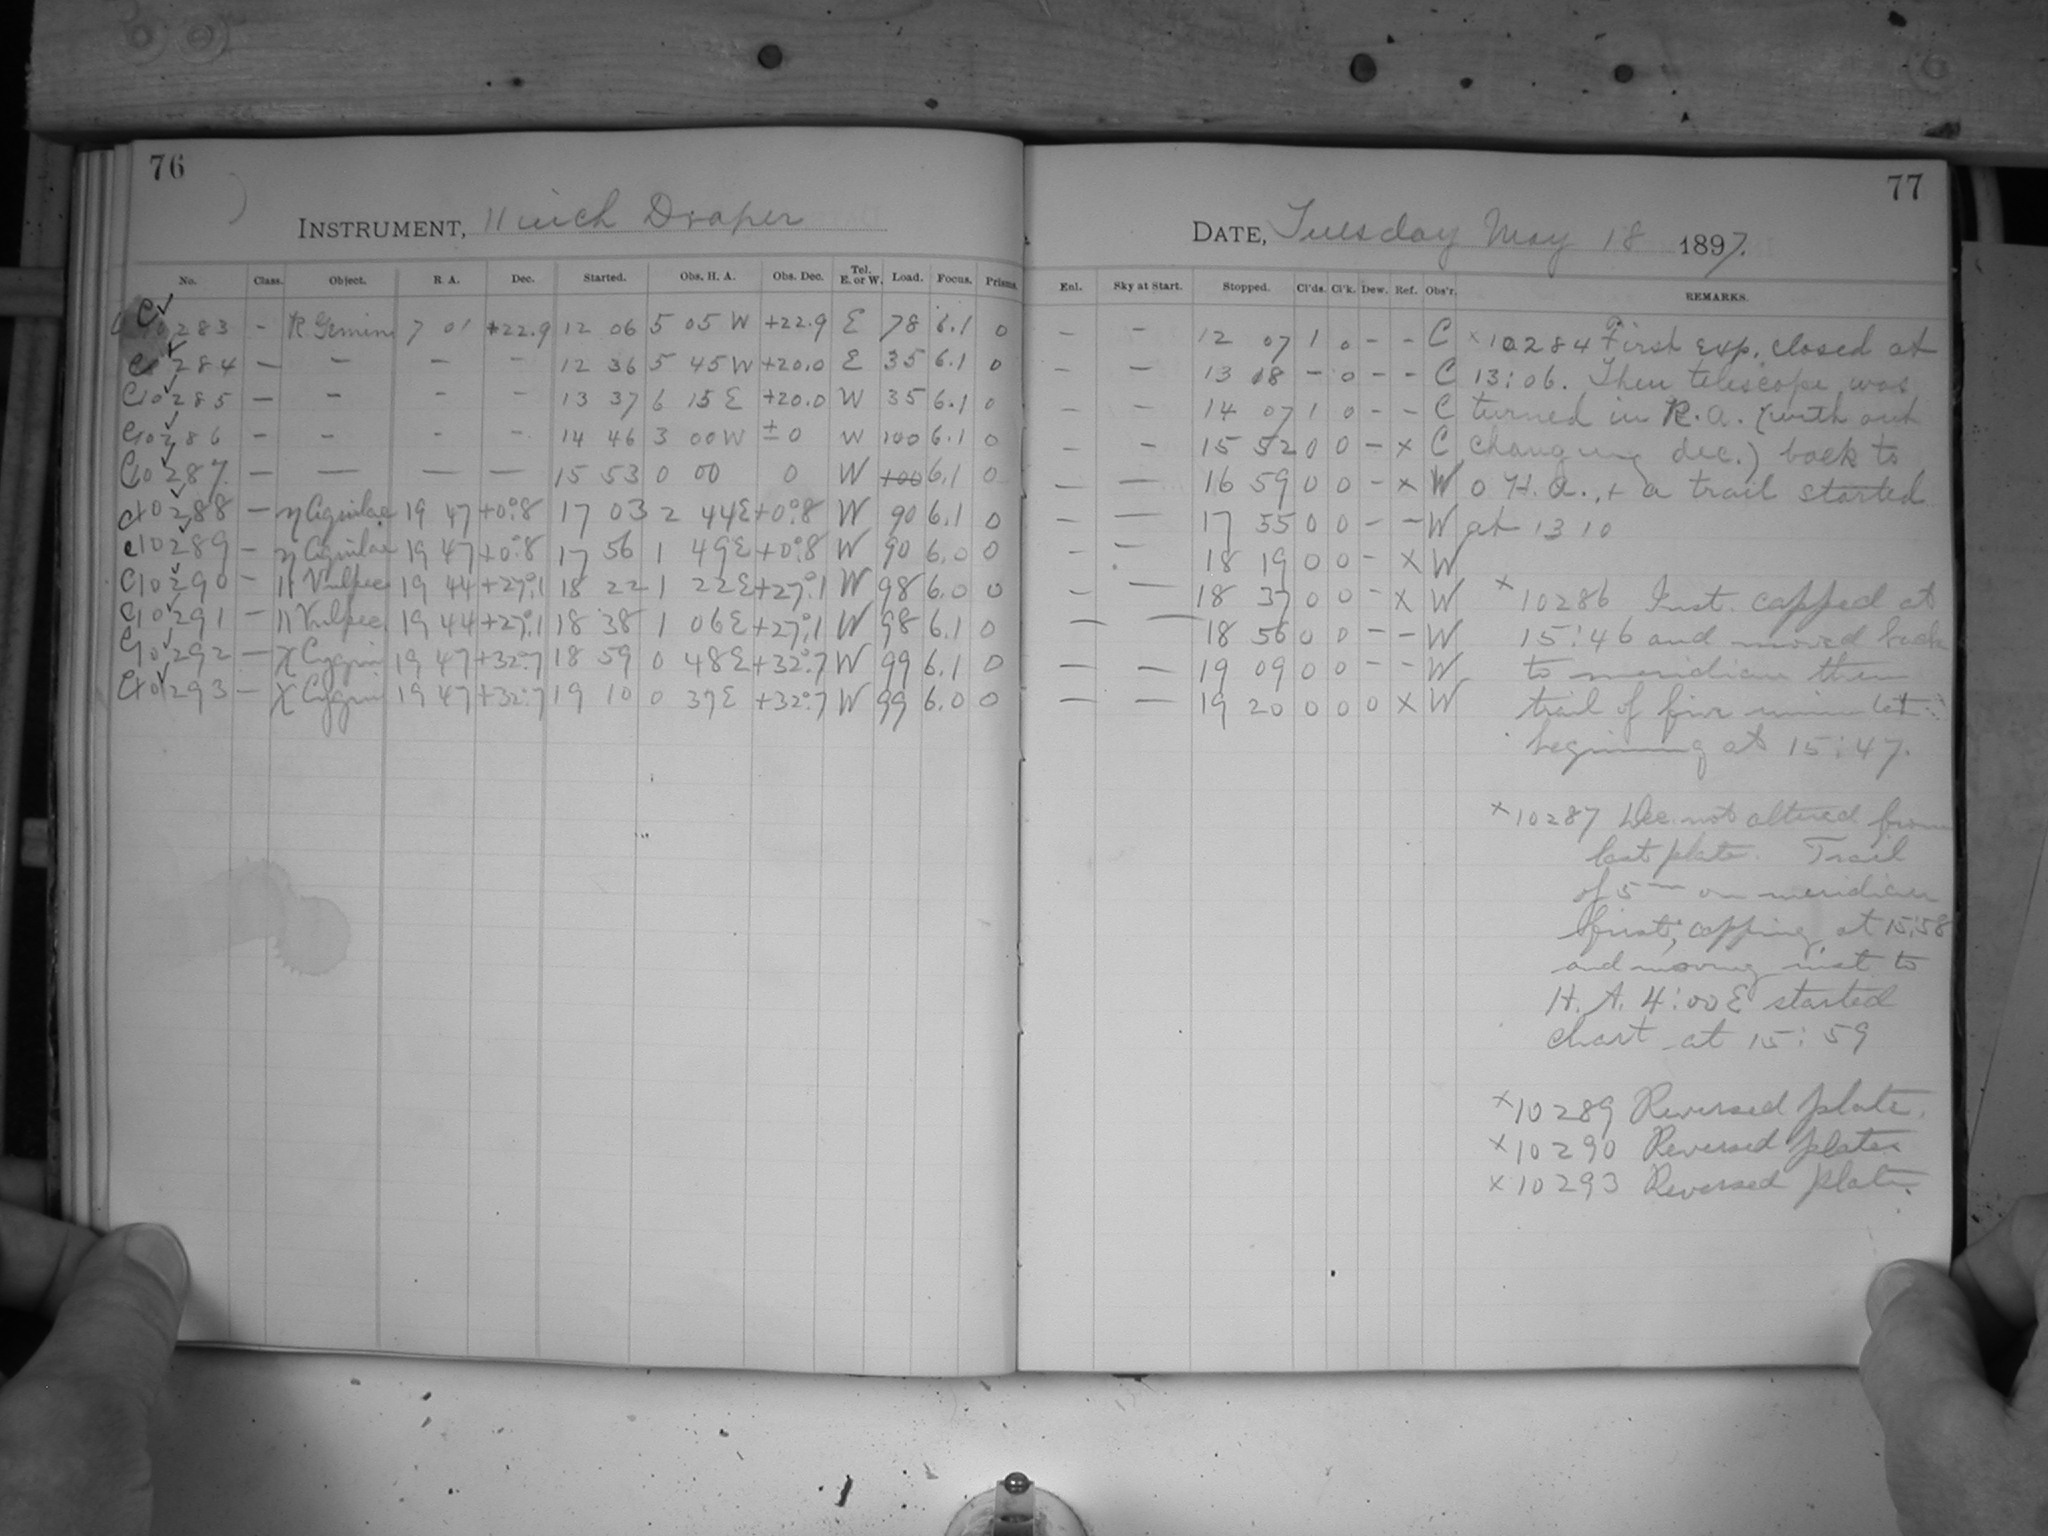 76
INSTRUMENT, 11 inch Draper
No. Class. Object. R. A. Dec. Started. Obs. H. A. Obs. Dec. Tel. E. or W. Load. Focus. Prisms.
C10283 - R Gemini 7 01 +22.9 12 06 5 05 W +22.9 E 78 6.1 0
C10284 - - - - 12 36 5 45 W +20.0 E 35 6.1 0
C10285 - - - - 13 37 6 15 E +20.0 W 35 6.1 0
C10286 - - - - 14 46 3 00 W ± 0 W 100 6.1 0
C10287 - - - - 15 53 0 00 0 W 100 6.1 0
C10288 - η Aquilae 19 47 +0°.8 17 03 2 44 E +0°.8 W 90 6.1 0
C10289 - η Aquilae 19 47 +0°.8 17 56 1 49 E +0°.8 W 90 6.0 0
C10290 - 11 Vulpec 19 44 +27°.1 18 22 1 22 E +27°.1 W 98 6.0 0
C10291 - 11 Vulpec. 19 44 +27°.1 18 38 1 06 E +27°.1 W 98 6.1 0
C10292 - χ Cygni 19 47 +32°.7 18 59 0 48 E +32°.7 W 99 6.1 0
C10293 - χ Cygni 19 47 +32°.7 19 10 0 37 E +32°.7 W 99 6.0 0
77
DATE, Tuesday May 18 1897.
Enl. Sky at Start. Stopped. Cl'ds. Cl'k. Dew. Ref. Obs'r. REMARKS.
- - 12 07 1 0 - - C
- - 13 18 - 0 - - C
- - 14 07 1 0 - - C
- - 15 52 0 0 - x C
- - 16 59 0 0 - x W
- - 17 55 0 0 - - W
- - 18 19 0 0 - x W
- - 18 37 0 0 - x W
- - 18 56 0 0 - - W
- - 19 09 0 0 - - W
- - 19 20 0 0 0 x W
x10284 First exp. closed at
13:06. Then telescope was
turned in R.A. (with out
changing dec.) back to
0 H.A., + a trail started
at 13 10
x10286 Inst. capped at
15:46 and moved back
to meridian then
trail of five minutes
beginning at 15:47.
x10287 Dec. not altered from
last plate. Trail
of 5m on meridian
first, capping at 15:58
and moving inst. to
H. A. 4:00 E started
chart at 15:59
x10289 Reversed plate.
x10290 Reversed plate
x10293 Reversed plate.